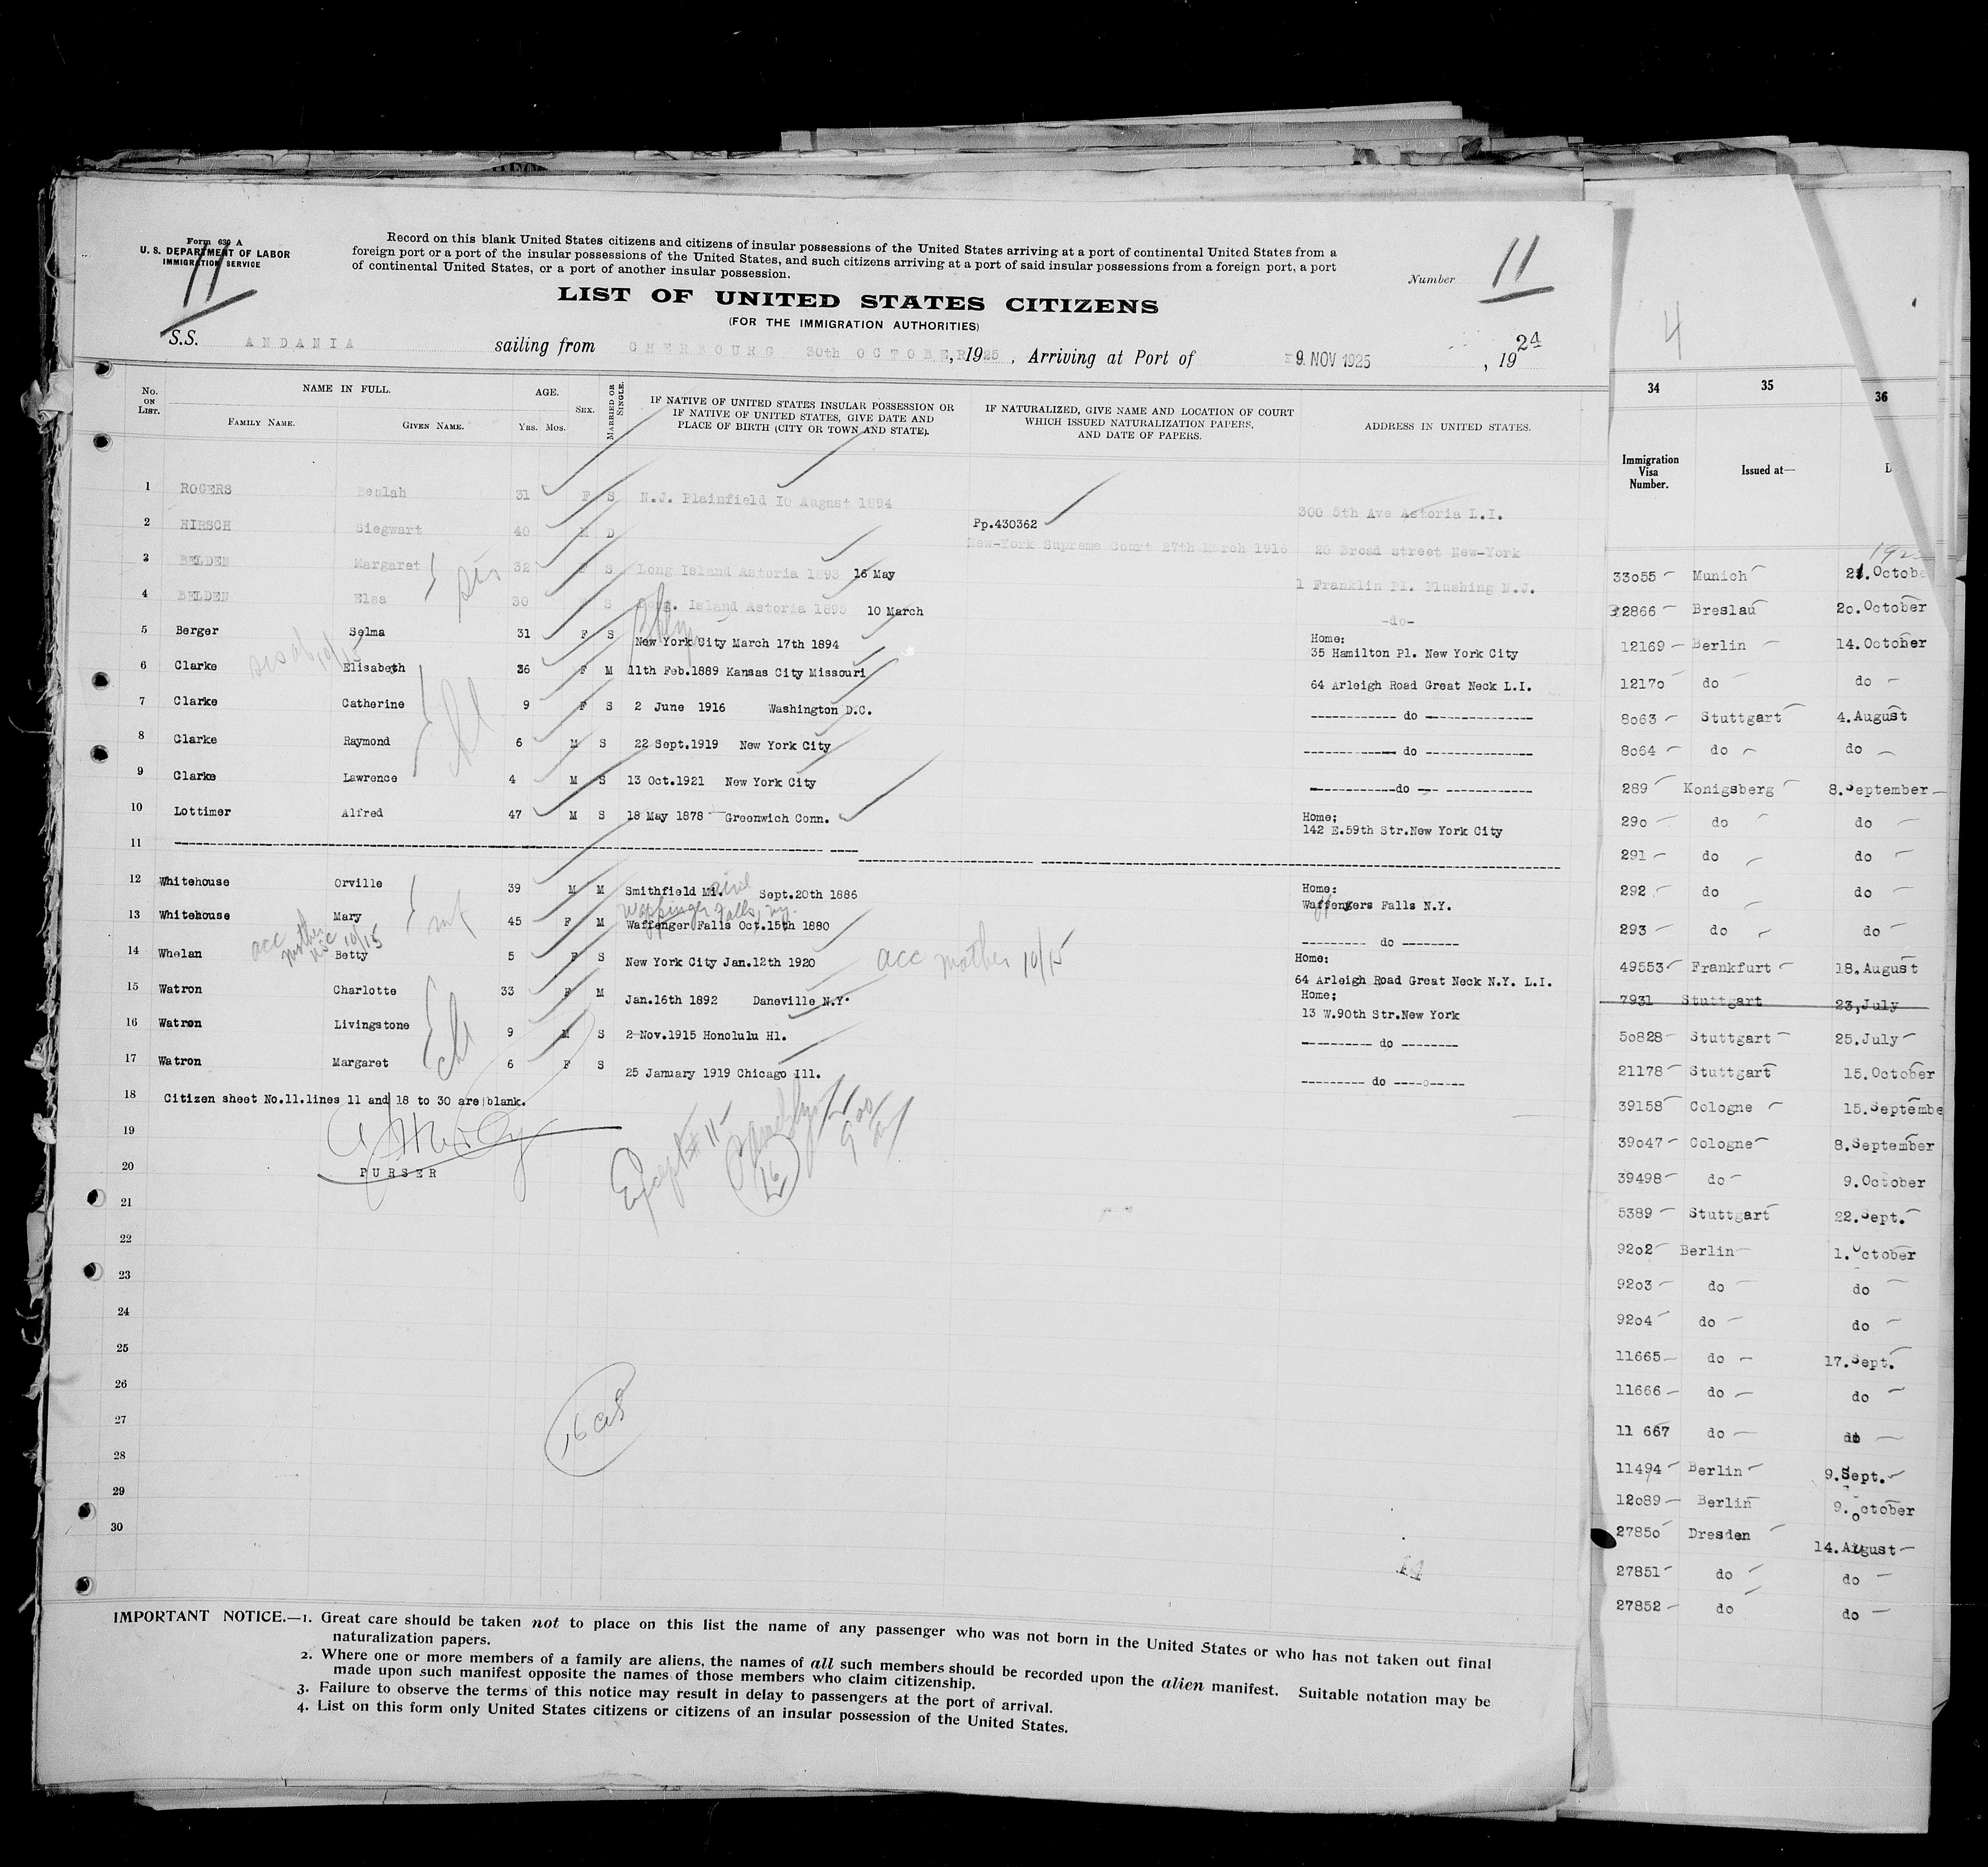 Form 630 A
U. S. DEPARTMENT OF LABOR
IMMIGRATION SERVICE
11
Record on this blank United States citizens and citizens of insular possessions of the United States arriving at a port of continental United States from a
foreign port or a port of the insular possessions of the United States, and such citizens arriving at a port of said insular possessions from a foreign port, a port
of continental United States, or a port of another insular possession.
Number 11
LIST OF UNITED STATES CITIZENS
(FOR THE IMMIGRATION AUTHORITIES)
S.S. ANDANIA sailing from CHERBOURG 30th OCTOBER, 1925, Arriving at Port of 9. NOV 1925, 19
24
No. ON LIST. NAME IN FULL. AGE. SEX. MARRIED OR SINGLE. IF NATIVE OF UNITED STATES INSULAR POSSESSION OR IF NATIVE OF UNITED STATES, GIVE DATE AND PLACE OF BIRTH (CITY OR TOWN AND STATE). IF NATURALIZED, GIVE NAME AND LOCATION OF COURT WHICH ISSUED NATURALIZATION PAPERS, AND DATE OF PAPERS. ADDRESS IN UNITED STATES.
FAMILY NAME. GIVEN NAME. Yrs. Mos.
1 ROGERS Beulah 31 F S N.J. Plainfield IO August 1894 300 5th Ave Astoria L.I.
2 HIRSCH Siegwart 40 M D Pp.430362
New-York Supreme Court 27th March 1916 20 Broad street New-York
3 BELDEN Margaret sis 32 F S Long Island Astoria 1893 16 May 1 Franklin Pl. Flushing N.J.
4 BELDEN Elsa 30 F S Long. Island Astoria 1895 10 March -do-
5 Berger Selma 31 F S New York City March 17th 1894 Home:
35 Hamilton Pl. New York City
6 Clarke Elisabeth 36 F M 11th Feb.1889 Kansas City Missouri 64 Arleigh Road Great Neck L.I.
7 Clarke Catherine 9 F S 2 June 1916 Washington D.C. ------------ do ---------------
8 Clarke Raymond 6 M S 22 Sept.1919 New York City ------------ do ---------------
9 Clarke Lawrence 4 M S 13 Oct.1921 New York City ------------do --- ------------
10 Lottimer Alfred 47 M S 18 May 1878 Greenwich Conn. Home;
142 E.59th Str.New York City
11
12 Whitehouse Orville 39 M M Smithfield Mi. Sept.20th 1886 Home:
Waffengers Falls N.Y.
Wappinger Falls, ny.
13 Whitehouse Mary 45 F M Waffenger Falls Oct.15th 1880 --------- do --------
acc mother 10/15
14 Whelan Betty 5 F S New York City Jan.12th 1920 acc mother 10/15 Home:
64 Arleigh Road Great Neck N.Y. L.I.
15 Watron Charlotte 33 F M Jan.16th 1892 Daneville N.Y. Home;
13 W.90th Str.New York
16 Watron Livingstone 9 M S 2 Nov.1915 Honolulu Hl. ---------- do --------
17 Watron Margaret 6 F S 25 January 1919 Chicago Ill. --------- do ---------
18 Citizen sheet No.11.lines 11 and 18 to 30 are blank.
19
PURSER
Except # 11
16
20
21
22
23
24
25
26
27
28
29
30
IMPORTANT NOTICE.—1. Great care should be taken not to place on this list the name of any passenger who was not born in the United States or who has not taken out final
naturalization papers.
2. Where one or more members of a family are aliens, the names of all such members should be recorded upon the alien manifest. Suitable notation may be
made upon such manifest opposite the names of those members who claim citizenship.
3. Failure to observe the terms of this notice may result in delay to passengers at the port of arrival.
4. List on this form only United States citizens or citizens of an insular possession of the United States.
4
34 35 36
Immigration Visa Number. Issued at— D
33055 Munich 21. Octobe
32866 Breslau 20. October
12169 Berlin 14. October
12170 do do
8063 Stuttgart 4. August
8064 do do
289 Konigsberg 8. September
290 do do
291 do do
292 do do
293 do do
49553 Frankfurt 18. August
7931 Stuttgart 23, July
50828 Stuttgart 25. July
21178 Stuttgart 15. October
39158 Cologne 15. Septembe
39047 Cologne 8. September
39498 do 9. October
5389 Stuttgart 22. Sept.
9202 Berlin 1. October
9203 do do
9204 do do
11665 do 17. Sept.
11666 do do
11 667 do do
11494 Berlin 9. Sept.
12089 Berlin 9. October
27850 Dresden 14. August
27851 do do
27852 do do